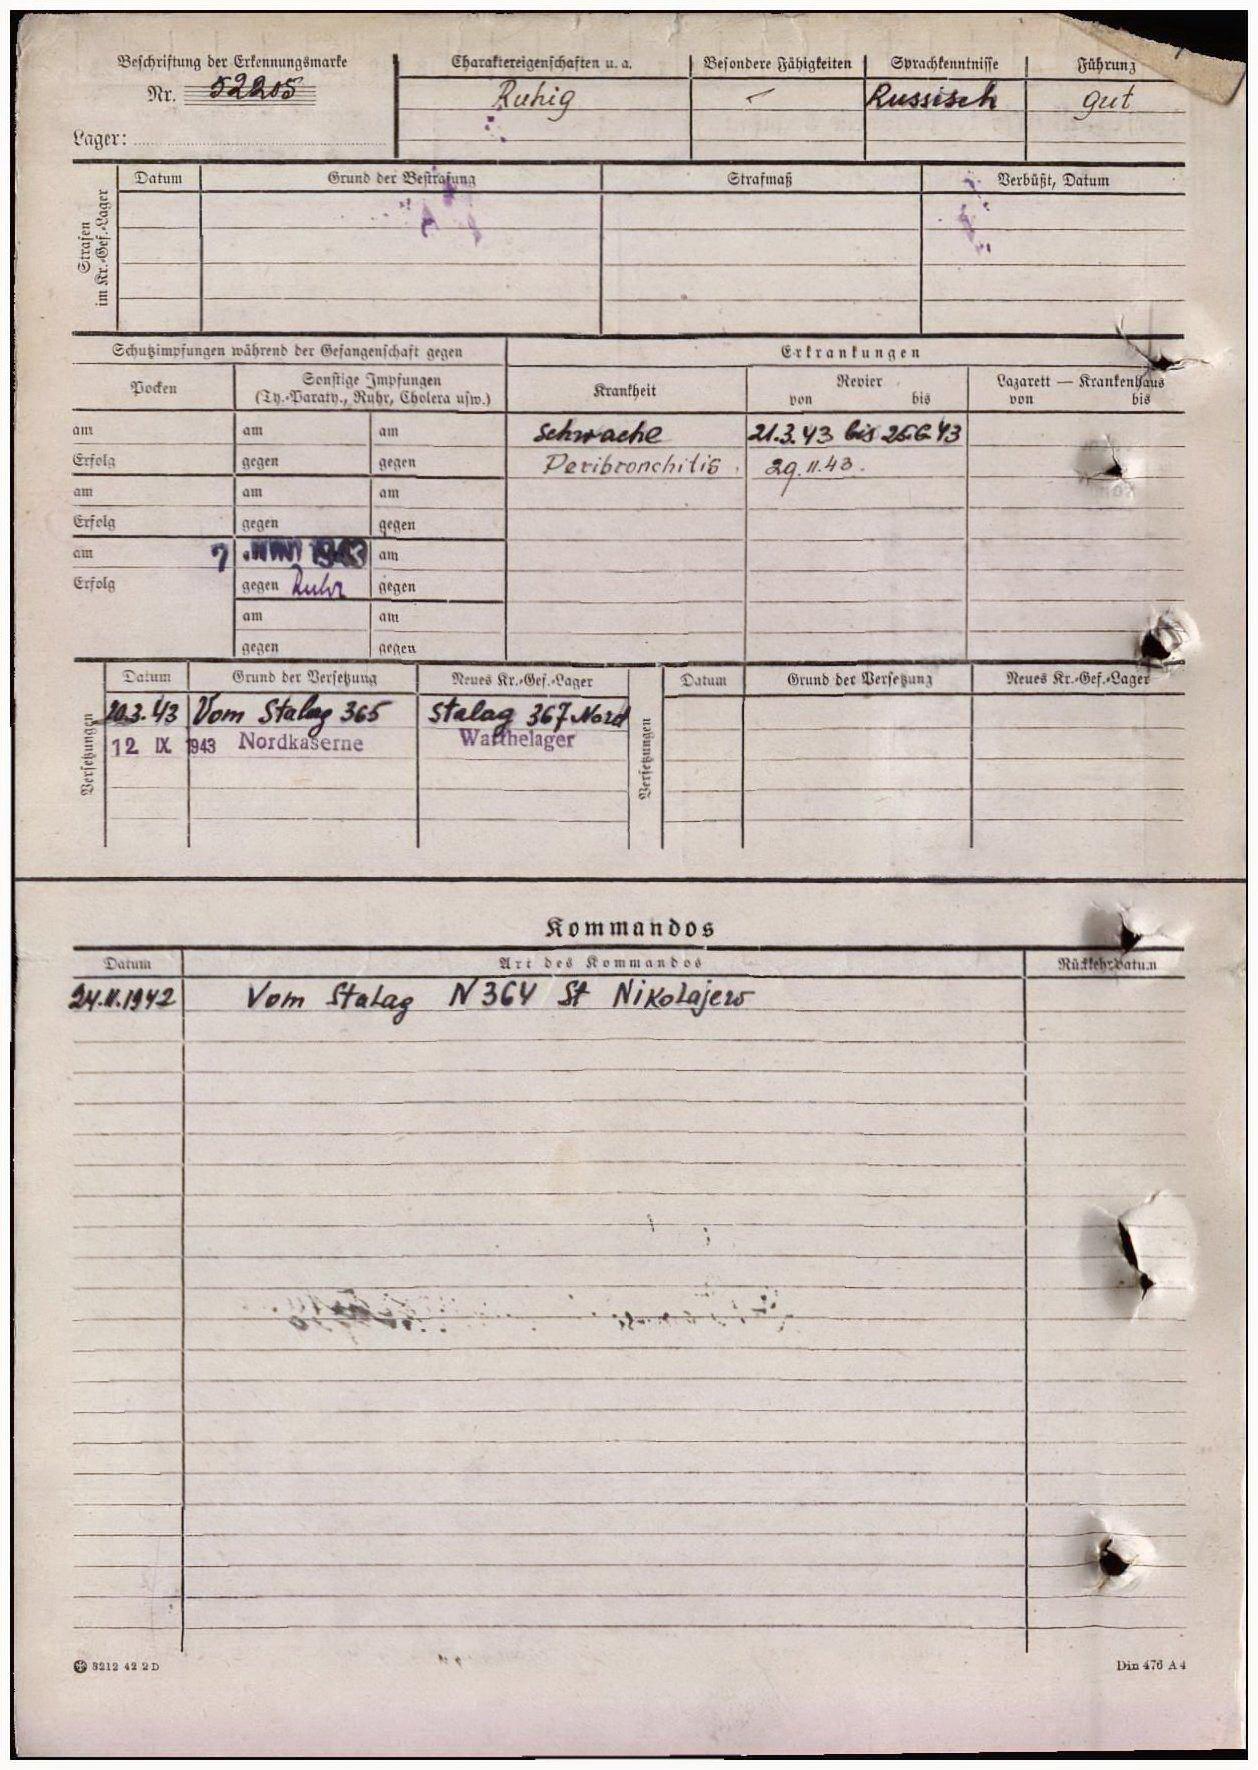 Beschriftung der Erkennungsmarke
Nr. 52205
Lager:
Charaktereigenschaften u. a. Besondere Fähigkeiten Sprachkenntnisse Führung
Ruhig – Russisch gut
Strafen im Kr.-Gef.-Lager
Datum Grund der Bestrafung Strafmaß Verbüßt, Datum
Schutzimpfungen während der Gefangenschaft gegen
Pocken
Sonstige Impfungen
(Ty.-Paraty., Ruhr, Cholera usw.)
Erkrankungen
Krankheit
Revier
von bis
Lazarett — Krankenhaus
von bis
am am am
Schwache 21.3.43 bis 25.6.43
Erfolg gegen gegen
Peribronchitis. 29.11.43.
am am am
Erfolg gegen gegen
am 7. 1943 am
Erfolg gegen Ruhr gegen
am am
gegen gegen
Versetzungen
Datum Grund der Versetzung Neues Kr.-Gef.-Lager
20.3.43 Vom Stalag 365 Stalag 367 Nord
12 IX. 1943 Nordkaserne Warthelager
Versetzungen
Datum Grund der Versetzung Neues Kr.-Gef.-Lager
Kommandos
Datum Art des Kommandos Rückkehrdatum
24.11.1942 Vom Stalag N 364 St Nikolajew
8212 42 2 D
Din 476 A 4